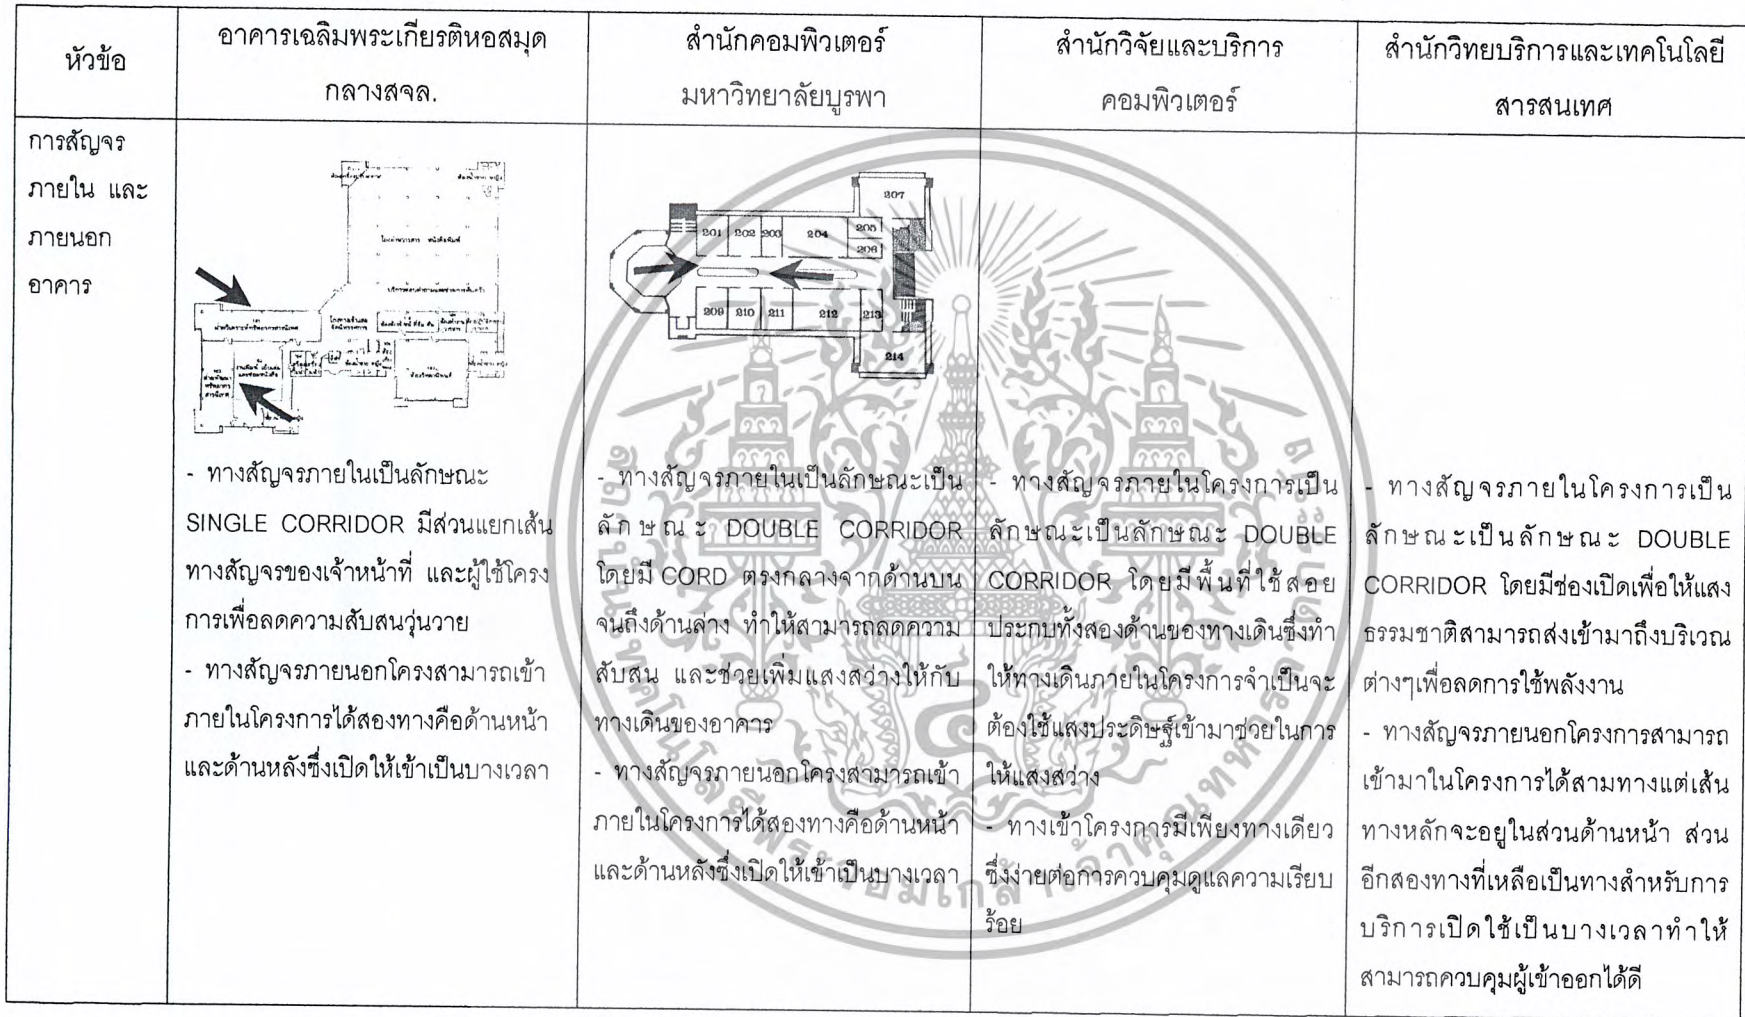 หัวข้อ
อาคารเฉลิมพระเกียรติหอสมุด
กลางสจล.
สำนักคอมพิวเตอร์
มหาวิทยาลัยบูรพา
สำนักวิจัยและบริการ
คอมพิวเตอร์
สำนักวิทยบริการและเทคโนโลยี
สารสนเทศ
การสัญจร
ภายใน และ
ภายนอก
อาคาร
- ทางสัญจรภายในเป็นลักษณะ
SINGLE CORRIDOR มีส่วนแยกเส้น
ทางสัญจรของเจ้าหน้าที่ และผู้ใช้โครง
การเพื่อลดความสับสนวุ่นวาย
- ทางสัญจรภายนอกโครงสามารถเข้า
ภายในโครงการได้สองทางคือด้านหน้า
และด้านหลังซึ่งเปิดให้เข้าเป็นบางเวลา
207
201 202 203 204 205
206
209 210 211 212 213
214
- ทางสัญจรภายในเป็นลักษณะเป็น
ลักษณะ DOUBLE CORRIDOR
โดยมี CORD ตรงกลางจากด้านบน
จนถึงด้านล่าง ทำให้สามารถลดความ
สับสน และช่วยเพิ่มแสงสว่างให้กับ
ทางเดินของอาคาร
- ทางสัญจรภายนอกโครงสามารถเข้า
ภายในโครงการได้สองทางคือด้านหน้า
และด้านหลังซึ่งเปิดให้เข้าเป็นบางเวลา
- ทางสัญจรภายในโครงการเป็น
ลักษณะเป็นลักษณะ DOUBLE
CORRIDOR โดยมีพื้นที่ใช้สอย
ประกบทั้งสองด้านของทางเดินซึ่งทำ
ให้ทางเดินภายในโครงการจำเป็นจะ
ต้องใช้แสงประดิษฐ์เข้ามาช่วยในการ
ให้แสงสว่าง
- ทางเข้าโครงการมีเพียงทางเดียว
ซึ่งง่ายต่อการควบคุมดูแลความเรียบ
ร้อย
- ทางสัญจรภายในโครงการเป็น
ลักษณะเป็นลักษณะ DOUBLE
CORRIDOR โดยมีช่องเปิดเพื่อให้แสง
ธรรมชาติสามารถส่งเข้ามาถึงบริเวณ
ต่างๆเพื่อลดการใช้พลังงาน
- ทางสัญจรภายนอกโครงการสามารถ
เข้ามาในโครงการได้สามทางแต่เส้น
ทางหลักจะอยู่ในส่วนด้านหน้า ส่วน
อีกสองทางที่เหลือเป็นทางสำหรับการ
บริการเปิดใช้เป็นบางเวลาทำให้
สามารถควบคุมผู้เข้าออกได้ดี
สถาบันเทคโนโลยีพระจอมเกล้าเจ้าคุณทหารลาดกระบัง